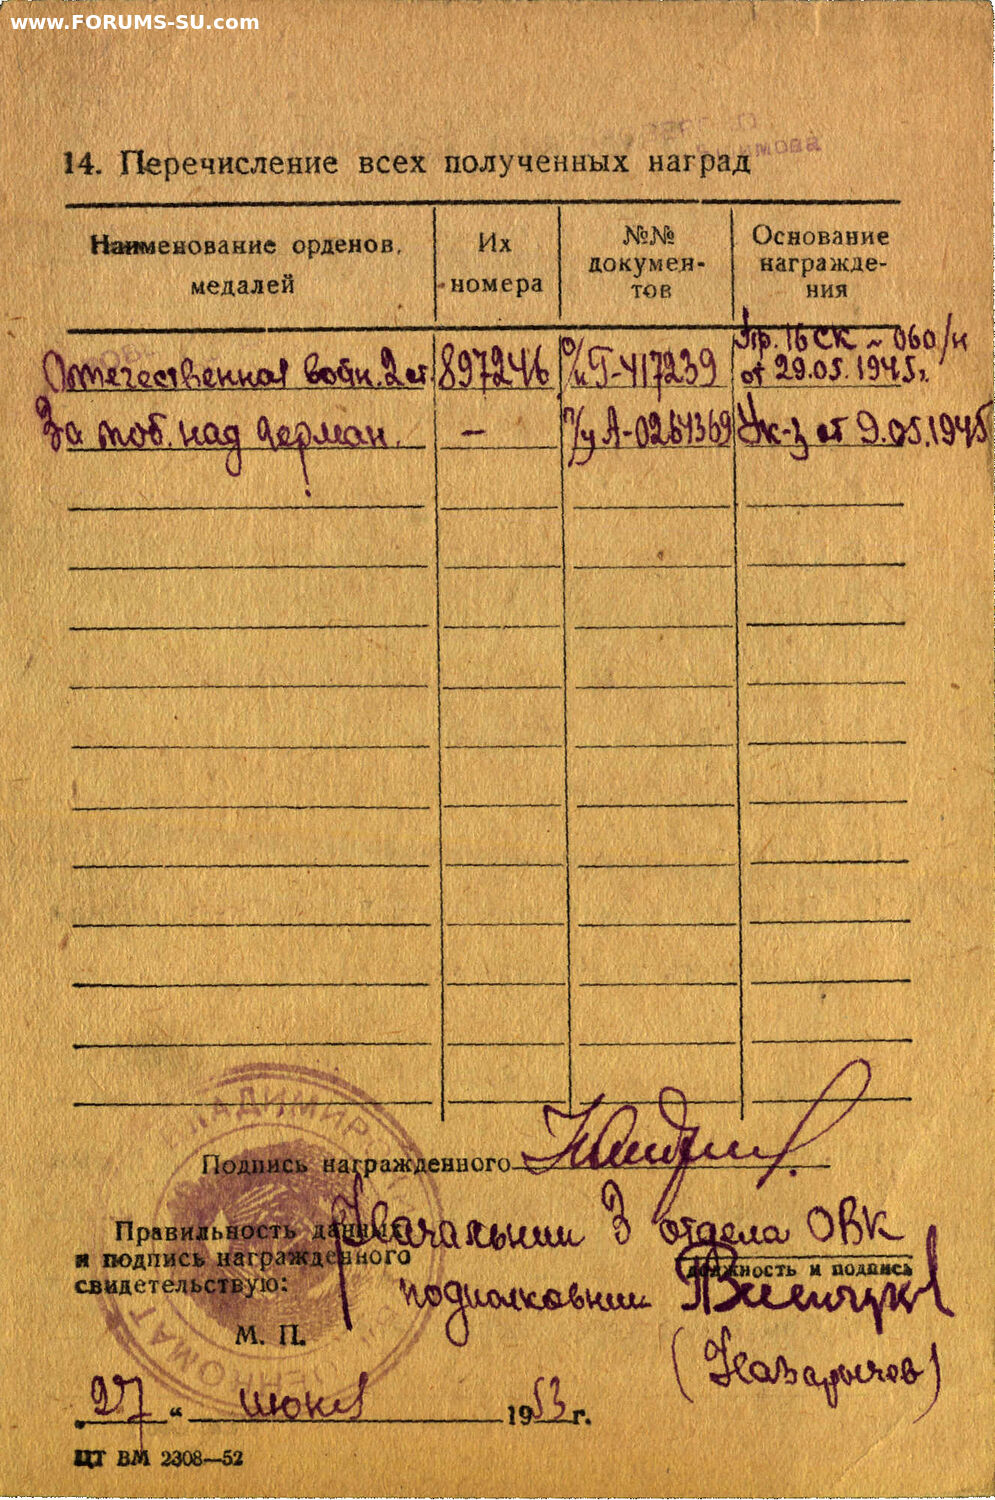 www.FORUMS-SU.com
14. Перечисление всех полученных наград
Наименование орденов, медалей
Их номера
№№ докумен-
тов
Основание
награжде-
ния
Отечественная войн. 2 ст. 897246 о/к Г-417239 Пр. 16 СК № 060/н
от 29.05.1945г.
За поб. над герман. — у А-0261369 Ук-з от 9.05.1945
Подпись награжденного
Правильность данных
и подпись награжденного
свидетельствую:
Начальник 3 отдела ОВК
должность и подпись
подполковник
М. П.
27 “ июня 1953 г.
ЦТ ВМ 2308—52